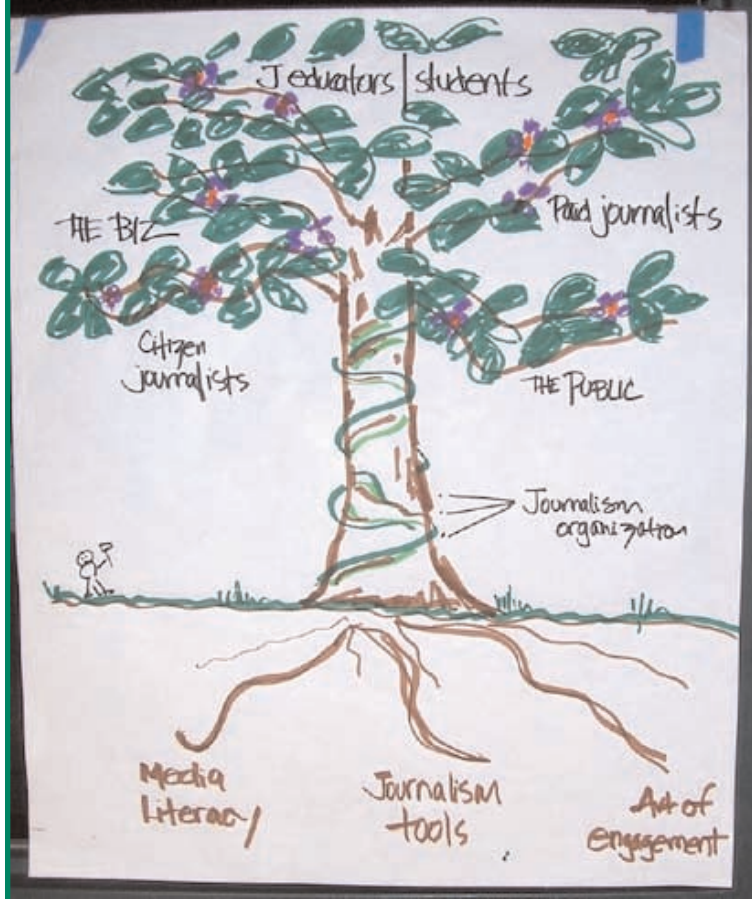 J educators | students
THE BIZ
Paid journalists
Citizen
journalists
THE PUBLIC
Journalism
organization
Media
Literacy
Journalism
tools
Art of
engagement